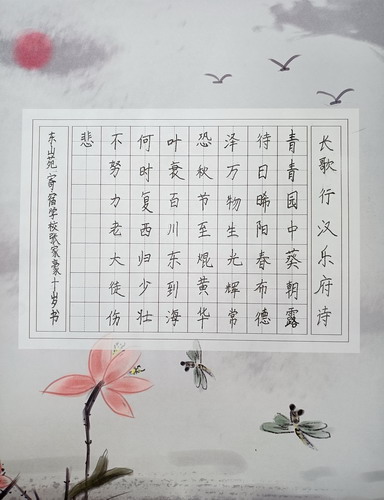 长歌行汉乐府诗
青青园中葵朝露
待日晞阳春布德
泽万物生光辉常
恐秋节至焜黄华
叶衰百川东到海
何时复西归少壮
不努力老大徒伤
悲
东山苑寄宿学校张家豪十岁书